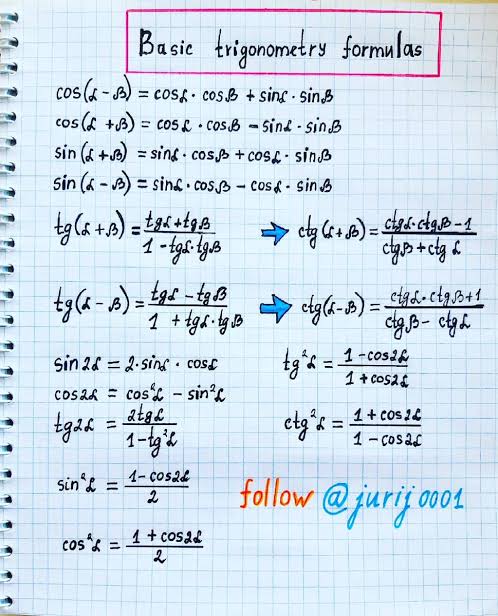 Basic trigonometry formulas
cos(α - β) = cosα · cosβ + sinα · sinβ
cos(α + β) = cosα · cosβ - sinα · sinβ
sin(α + β) = sinα · cosβ + cosα · sinβ
sin(α - β) = sinα · cosβ - cosα · sinβ
tg(α + β) = (tgα + tgβ)/(1 - tgα · tgβ) ⇒ ctg(α + β) = (ctgα · ctgβ - 1)/(ctgβ + ctgα)
tg(α - β) = (tgα - tgβ)/(1 + tgα · tgβ) ⇒ ctg(α - β) = (ctgα · ctgβ + 1)/(ctgβ - ctgα)
sin2α = 2 · sinα · cosα
tg²α = (1 - cos2α)/(1 + cos2α)
cos2α = cos²α - sin²α
tg2α = 2tgα/(1 - tg²α)
ctg²α = (1 + cos2α)/(1 - cos2α)
sin²α = (1 - cos2α)/2
follow @jurij0001
cos²α = (1 + cos2α)/2